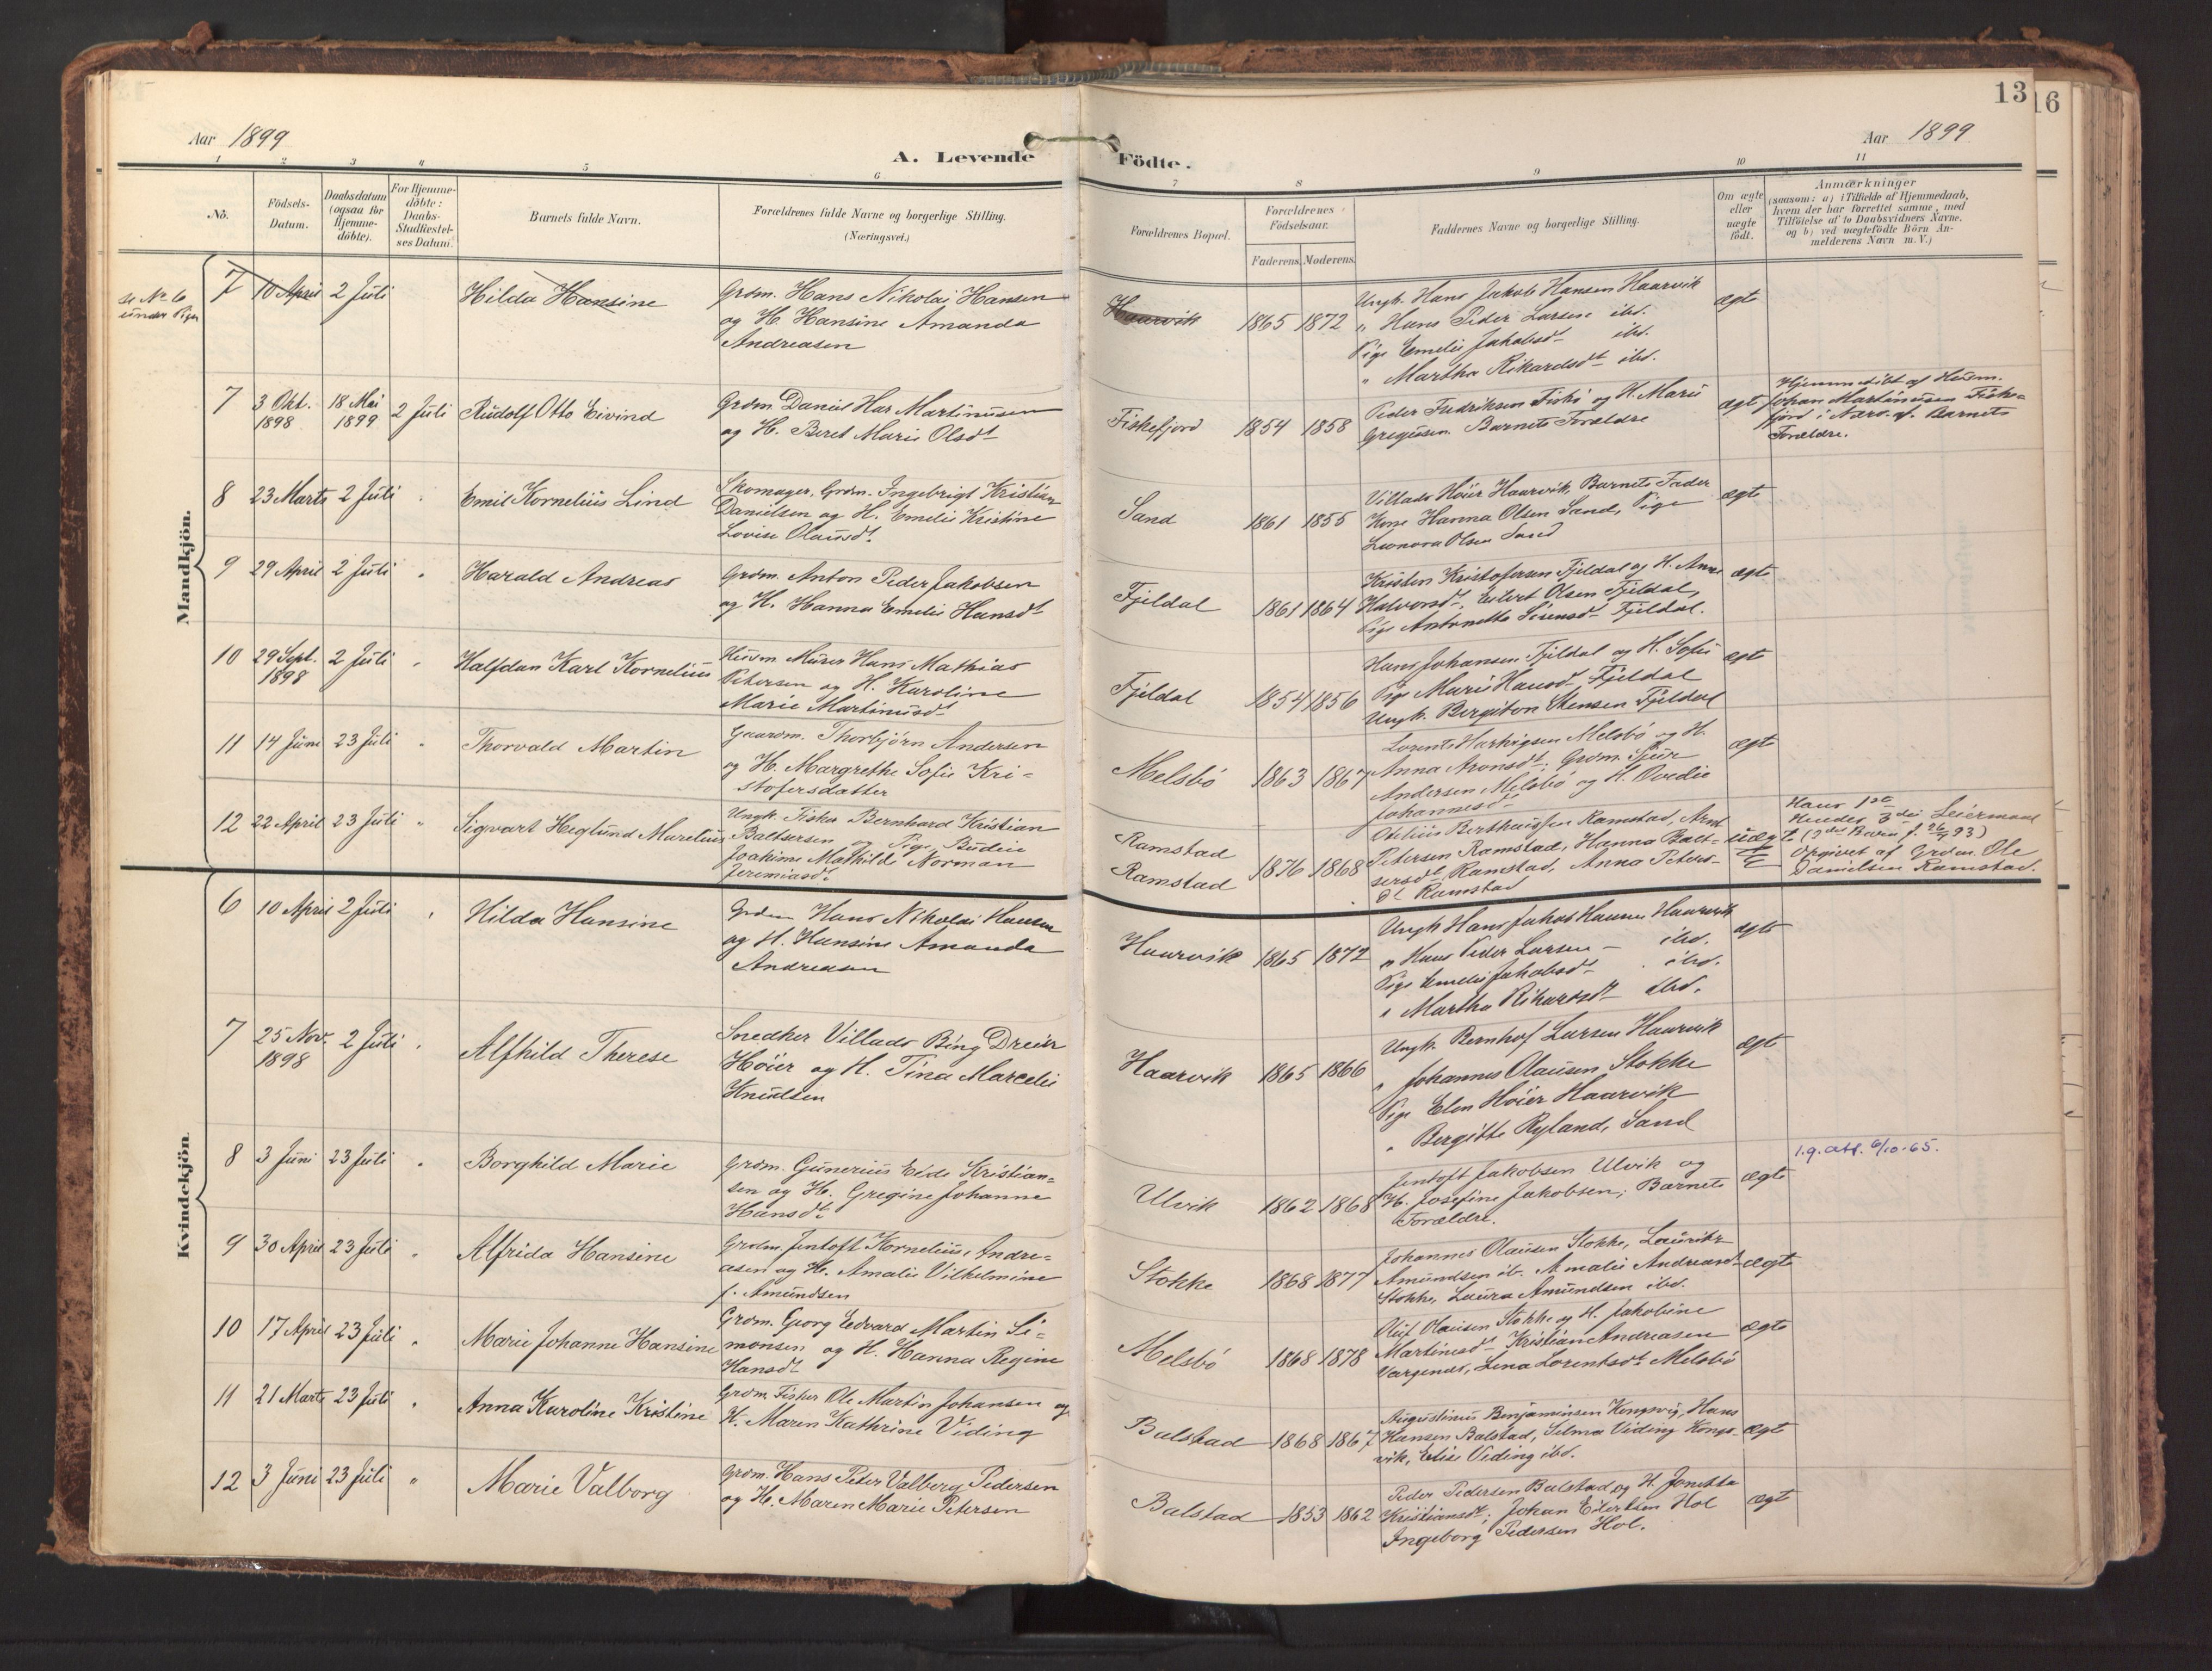 13
16
Aar 1899
A. Levende Födte.
Aar 1899
1 2 3 4 5 6 7 8 9 10 11
No.
Födsels-
Datum.
Daabsdatum
(ogsaa for
Hjemme-
döbte).
For Hjemme-
döbte:
Daabs-
Stadfæstel-
ses Datum.
Barnets fulde Navn.
Forældrenes fulde Navne og borgerlige Stilling.
(Næringsvei.)
Forældrenes Bopæl.
Forældrenes
Födselsaar.
Faderens. Moderens.
Faddernes Navne og borgerlige Stilling.
Om ægte
eller
uægte
födt.
Anmærkninger
(saasom: a) i Tilfælde af Hjemmedaab,
hvem der har forrettet samme, med
Tilföielse af to Daabsvidners Navne.
og b) ved uægtefödte Börn An-
melderens Navn m. V.)
Mandkjön.
se No 6
under Piger
7 10 April 2 Juli Hilda Hansine
Grdm. Hans Nikolai Hansen
og H. Hansine Amanda
Andreasen
Haarvik 1865 1872
Ungk. Hans Jakob Hansen Haarvik
" Hans Peder Larsen ibd.
Pige Emelie Jakobsdt ibd.
" Martha Rikardsdt ibd.
ægte
7 3 Okt. 1898 18 Mai 1899 2 Juli Rudolf Otto Eivind
Grdm. Daniel Har Martinusen
og H. Beret Marie Olsdt
Fiskefjord 1854 1858
Peder Fredriksen Fiskø og H. Marie
Gregusen. Barnets Forældre
ægte
Hjemmedöbt af Husm.
Johan Martinusen Fiske-
fjord i Nærv. af Barnets
Forældre.
8 23 Marts 2 Juli " Emil Kornelius Lind
Skomager, Grdm. Ingebrigt Kristian
Danielsen og H. Emelie Kristine
Lovise Olausdt.
Sand 1861 1855
Villads Höier Haarvik, Barnets Fader
Kone Hanna Olsen Sand, Pige
Leonora Olsen Sand
ægte
9 29 April 2 Juli " Harald Andreas
Grdm. Anton Peder Jakobsen
og H. Hanna Emelie Hansdt
Fjeldal 1861 1864
Kristen Kristofersen Fjeldal og H. Anne
Halvorsdt, Eilert Olsen Fjeldal,
Pige Antonette Sörensdt Fjeldal.
ægte
10 29 Sept. 1898 2 Juli " Halfdan Karl Kornelius
Husm. Murer Hans Mathias
Petersen og H. Karoline
Marie Martinusdt
Fjeldal 1854 1856
Hans Johansen Fjeldal og H. Sofie
Pige Marie Hansdt Fjeldal
Ungk. Bergiton Stensen Fjeldal
ægte
11 14 Juni 23 Juli " Thorvald Martin
Gaardm. Thorbjörn Andersen
og H. Margrethe Sofie Kri-
stofersdatter
Melsbö 1863 1867
Lorents Hartvigsen Melsbö og H.
Anna Aronsdt; Grdm. Sjur
Andersen Melsbö og H. Ovedie
Johannesdt
ægte
12 22 April 23 Juli " Sigvart Heglund Marelius
Ungk. Fisker Bernhard Kristian
Baltsersen og Pige, Budeie
Joakime Mathild Norman
Jeremiasdt.
Ramstad
Ramstad 1876 1868
Otelius Bertheussen Ramstad, Arnt
Petersen Ramstad, Hanna Balt-
sersdt Ramstad, Anna Peters-
dt Ramstad
uægt.
Hans 1ste
Hendes 3die Leiermaal
(2det Barn f. 26/4 93)
Opgivet af Grdm. Ole
Danielsen Ramstad.
Kvindekjön.
6 10 April 2 Juli " Hilda Hansine
Grdm Hans Nikolai Hansen
og H. Hansine Amanda
Andreasen
Haarvik 1865 1872
Ungk Hans Jakob Hansen Haarvik
" Hans Peder Larsen - ibd.
Pige Emelie Jakobsdt ibd.
" Martha Rikardsdt ibd.
ægte
7 25 Nov. 1898 2 Juli " Alfhild Therese
Snedker Villads Bing Dreier
Höier og H. Tina Marcelie
Knudtsen
Haarvik 1865 1866
Ungk. Bernhof Larsen Haarvik
" Johannes Olausen Stokke
Pige Elen Höier Haarvik
" Bergitte Ryland, Sand
ægte
8 3 Juni 23 Juli " Borghild Marie
Grdm. Gunerius Eide Kristian-
sen og H. Gregine Johanne
Hansdt.
Ulvik 1862 1868
Jentoft Jakobsen Ulvik og
H. Josefine Jakobsen; Barnets
Forældre.
ægte
1.g. att. 6/10-65.
9 30 April 23 Juli " Alfrida Hansine
Grdm. Jentoft Kornelius Andre-
asen og H. Amalie Vilhelmine
f. Amundsen
Stokke 1868 1877
Johannes Olausen Stokke, Lauritz
Amundsen ib. Amalie Andreasdt
Stokke, Laura Amundsen ibd.
ægte
10 17 April 23 Juli " Marie Johanne Hansine
Grdm. Georg Edvard Martin Si-
monsen og H. Hanna Regine
Hansdt
Melsbö 1868 1878
Oluf Olausen Stokke og H. Jakobine
Martinesdt Kristian Andreasen
Vargenes, Lena Lorentsdt. Melsbö
ægte
11 21 Marts 23 Juli " Anna Karoline Kristine
Grdm. Fisker Ole Martin Johansen og
H. Maren Kathrine Viding
Balstad 1868 1867
Augustinus Benjaminsen Kongsvig, Hans
Hansen Balstad, Selma Viding Kongs-
vik, Elise Viding ibd.
ægte
12 3 Juni 23 Juli " Marie Valborg
Grdm. Hans Peter Valberg Pedersen
og H. Maren Marie Petersen
Balstad 1853 1862
Peder Pedersen Balstad og H. Jonetta
Kristiansdt; Johan Eilertsen Hol
Ingeborg Pedersen Hol.
ægte